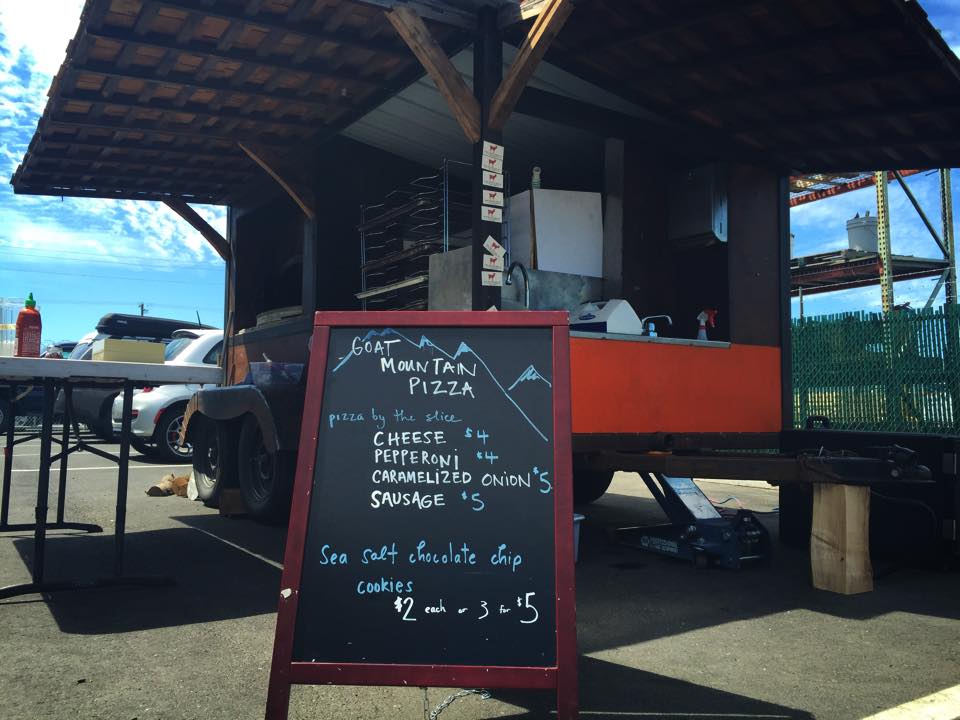 GOAT
MOUNTAIN
PIZZA
pizza by the slice
CHEESE $4
PEPPERONI $4
CARAMELIZED ONION $5
SAUSAGE $5
Sea salt chocolate chip
cookies
$2 each or 3 for $5